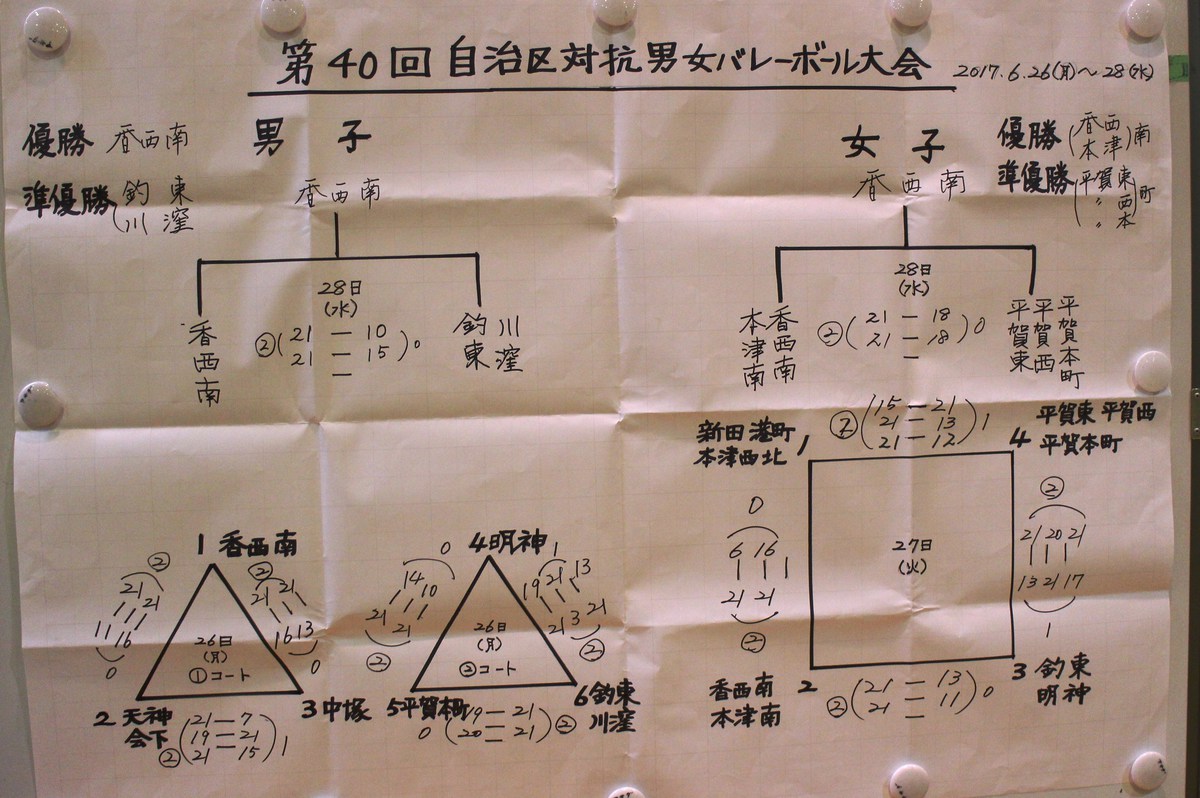 第40回 自治区対抗男女バレーボール大会 2017.6.26(月)～28(水)
優勝 香西南
準優勝(釣東
川窪
男 子
香西南
28日
(水)
②(21 — 10
21 — 15)0
—
香西南
釣東
川窪
女 子
優勝(香西
本津)南
準優勝(平賀東
〃西
〃本)町
香西南
28日
(水)
②(21 — 18
21 — 18)0
—
香西南
本津南
平賀本町
平賀西
平賀東
1 香西南
②
21 21
11 16
0
②
21 21
16 13
0
26日
(月)
①コート
2 天神
会下
3中塚
②(21—7
19—21
21—15)1
4明神
0
14 10
21 21
②
1
19 21 13
21 3 21
②
26日
(月)
②コート
5平賀本町
6釣東
川窪
0(19—21
20—21)②
—
新田 港町
本津西北 1
②(15—21
21—13
21—12)1
4 平賀東 平賀西
平賀本町
0
6 16
21 21
②
27日
(火)
②
21 20 21
13 21 17
1
香西南 2
本津南
②(21 — 13
21 — 11)0
—
3 釣東
明神